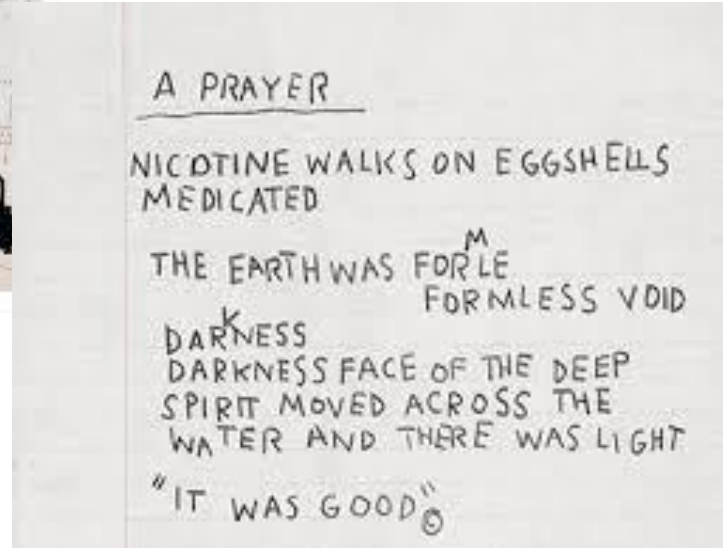 A PRAYER
NICOTINE WALKS ON EGGSHELLS
MEDICATED
THE EARTH WAS FORMLE
FORMLESS VOID
DARKNESS
DARKNESS FACE OF THE DEEP
SPIRIT MOVED ACROSS THE
WATER AND THERE WAS LIGHT
"IT WAS GOOD"©